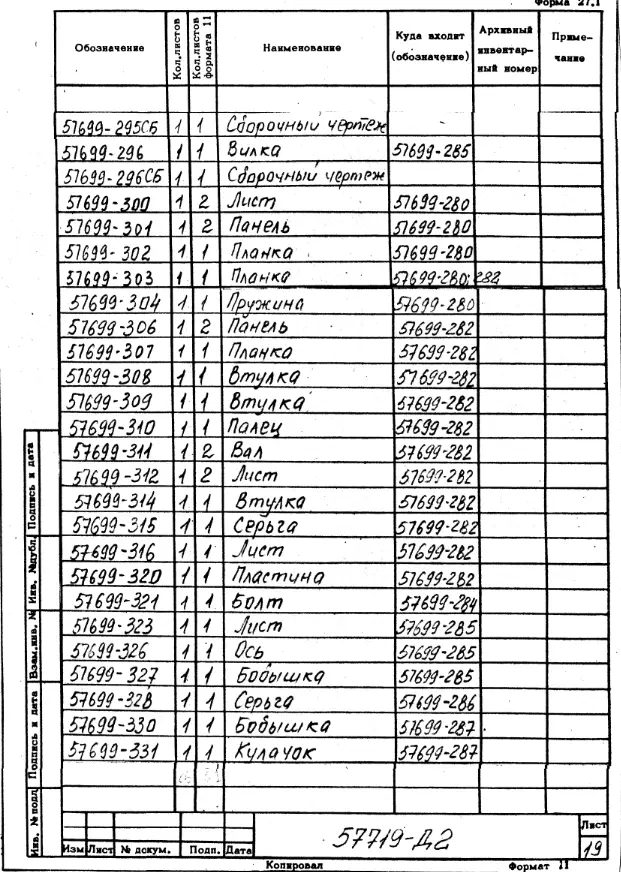 Форма 27.1
Обозначение Кол.листов Кол.листов формата 11 Наименование Куда входит (обозначение) Архивный инвентарный номер Примечание
57699-295СБ 1 1 Сборочный чертеж
57699-296 1 1 Вилка 57699-285
57699-296СБ 1 1 Сборочный чертеж
57699-300 1 2 Лист 57699-280
57699-301 1 2 Панель 57699-280
57699-302 1 1 Планка 57699-280
57699-303 1 1 Планка 57699-280; 282
57699-304 1 1 Пружина 57699-280
57699-306 1 2 Панель 57699-282
57699-307 1 1 Планка 57699-282
57699-308 1 1 Втулка 57699-282
57699-309 1 1 Втулка 57699-282
57699-310 1 1 Палец 57699-282
57699-311 1 2 Вал 57699-282
57699-312 1 2 Лист 57699-282
57699-314 1 1 Втулка 57699-282
57699-315 1 1 Серьга 57699-282
57699-316 1 1 Лист 57699-282
57699-320 1 1 Пластина 57699-282
57699-321 1 1 Болт 57699-284
57699-323 1 1 Лист 57699-285
57699-326 1 1 Ось 57699-285
57699-327 1 1 Бобышка 57699-285
57699-328 1 1 Серьга 57699-286
57699-330 1 1 Бобышка 57699-287
57699-331 1 1 Кулачок 57699-287
Инв. № подл. Подпись и дата Взам.инв. № Инв. №дубл. Подпись и дата
Изм Лист № докум. Подп. Дата
57719-Д2
Лист
19
Копировал Формат 11